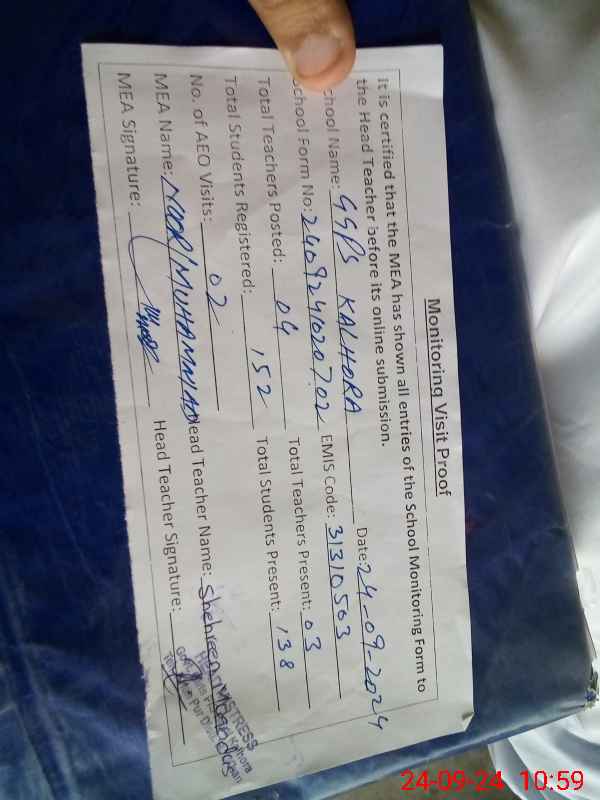 Monitoring Visit Proof
It is certified that the MEA has shown all entries of the School Monitoring Form to
the Head Teacher before its online submission.
chool Name: GGPS KALHORA Date: 24-09-2024
chool Form No: 2409241020702 EMIS Code: 31310503
Total Teachers Posted: 04 Total Teachers Present: 03
Total Students Registered: 152 Total Students Present: 138
No. of AEO Visits: 02
MEA Name: NOOR MUHAMMAD ead Teacher Name: Shehreen
MEA Signature: Head Teacher Signature:
MISTRESS
Kalhora
24-09-24 10:59